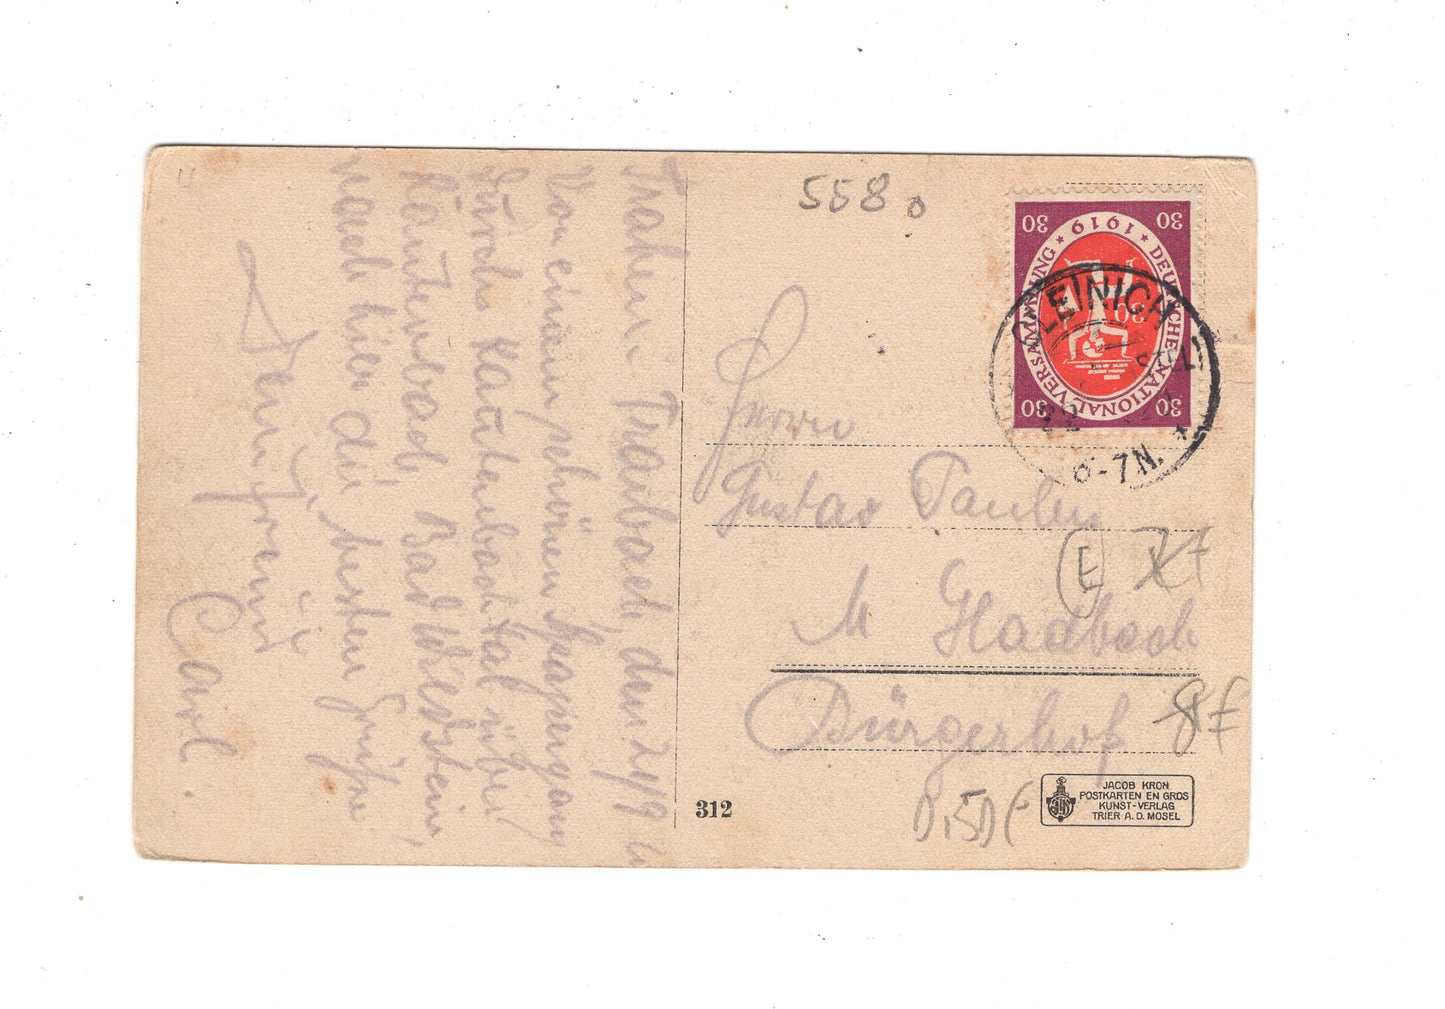 Traben-Trarbach, den 24/9
Von einem schönen Spaziergang
durchs Kautenbachtal über
Kautenbach, Bad Wildstein,
nach hier die besten Grüße
Dein Freund
Carl.
558
30 30
1919 * DEUTSCHE NATIONALVERSAMMLUNG *
30
30 30
KLEINICH
6-7N. *
Herrn
Gustav Paulen
M Gladbach
Bürgerhof
E
312
JACOB KRON
POSTKARTEN EN GROS
KUNST-VERLAG
TRIER A. D. MOSEL